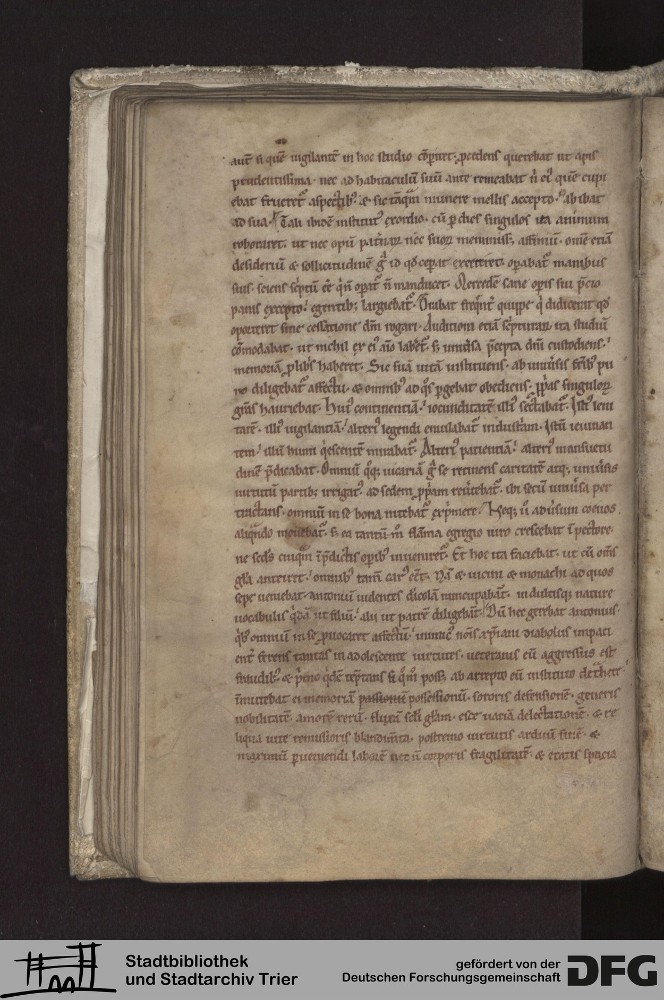 autē si quē uigilantē in hoc studio cōperiret; p̄cedens querebat ut apis
prudentissima. nec ad habitaculū suū ante remeabat n̄ eiꝰ quē cupi
ebat frueret᷑ aspectibꝰ. & sic tāq̄m munere mellis accepto. abibat
ad sua. Tali ibidē institutꝰ exordio. cū p dies singulos ita animum
roboraret. ut nec opū patnaꝝ nec suoꝝ meminiss; affiniū. omē etiā
desideriū & sollicitudinē gͥ id qđ ceperat exerceret. oꝑabat᷑ manibus
suis. sciens sc̄ptū eē qͥ n̄ oꝑat᷑ n̄ manducet. Mercedē sane oꝑis sui p̄cio
panis excepto; egentibꝫ largiebat᷑. Orabat freqn̄t quippe qͥ didicerat qđ
oporteret sine cessatione dm̄ rogari. Auditioni etiā sc̄pturaꝝ ita studiū
cōmodabat. ut nichil ex eiꝰ aīo laberet᷑. sꝫ uniūsa p̄cepta dn̄i custodiens.
memoriā p libris haberet. Sic suā uitā instituens. ab uniūsis frībꝰ pu
ro diligebat᷑ affectu. & omnibꝰ ad qͦs pgebat obediens. ꝓpas singuloꝝ
gr̄as hauriebat. Huiꝰ continentiā. iocunditatē illiꝰ sectabat᷑. Istiꝰ leni
tatē. illiꝰ uigilantiā. alteriꝰ legendi emulabat᷑ industam. Istū ieiunan
tem. illū humi qͥescentē mirabat᷑. Alteriꝰ patientiā. alteriꝰ mansuetu
dinē p̄dicabat. Omniū qꝫ uicariā gͥ se retinens caritatē atqꝫ uniūsis
uirtutū partibꝫ irrigatꝰ. ad sedem ꝓpam reūtebat᷑. ibi secū uniūsa per
tractans. omniū in se bona nitebat᷑ exp̄mere. Neqꝫ ū adūsum coeuos
aliqn̄do mouebat᷑. sꝫ ea tantū m̄ flāma egregio uiro crescebat ī pectore
ne scd̄s cuiqm̄ ī p̄dictis oꝑibꝰ inueniret᷑. Et hoc ita faciebat. ut cū om̄s
glā anteiret. omnibꝰ tam̄ carꝰ eēt. Nā & uicini & monachi ad quos
sepe ueniebat. antoniū uidentes dīcolā nuncupabāt. indultisqꝫ nature
uocabulis. qͥdā ut filiū. alii ut patrē diligebāt. Dū hec gerebat antonius.
qͥbꝰ omniū in se ꝓuocaret affectū. inimicꝰ nois xp̄iani diabolus impati
ent᷑ ferens tantas in adolescente uirtutes. ueteranis eū aggressus est
fraudibꝰ. & pͥmo qͥdē teptans si qͦm̄ poss; ab arrepto eū instituto detħere.
īmittebat ei memoriā possessionū. sororis defensionē. generis
nobilitatē. amorē rerū. fluxā scl̄i glam. esce uariā delectationē. & re
liqua uite remissioris blandim̄ta. postremo uirtutis arduū finē. &
maximū pueniendi laborē nec n̄ corporis fragilitatē. & etatis spacia
Stadtbibliothek
und Stadtarchiv Trier
gefördert von der
Deutschen Forschungsgemeinschaft
DFG